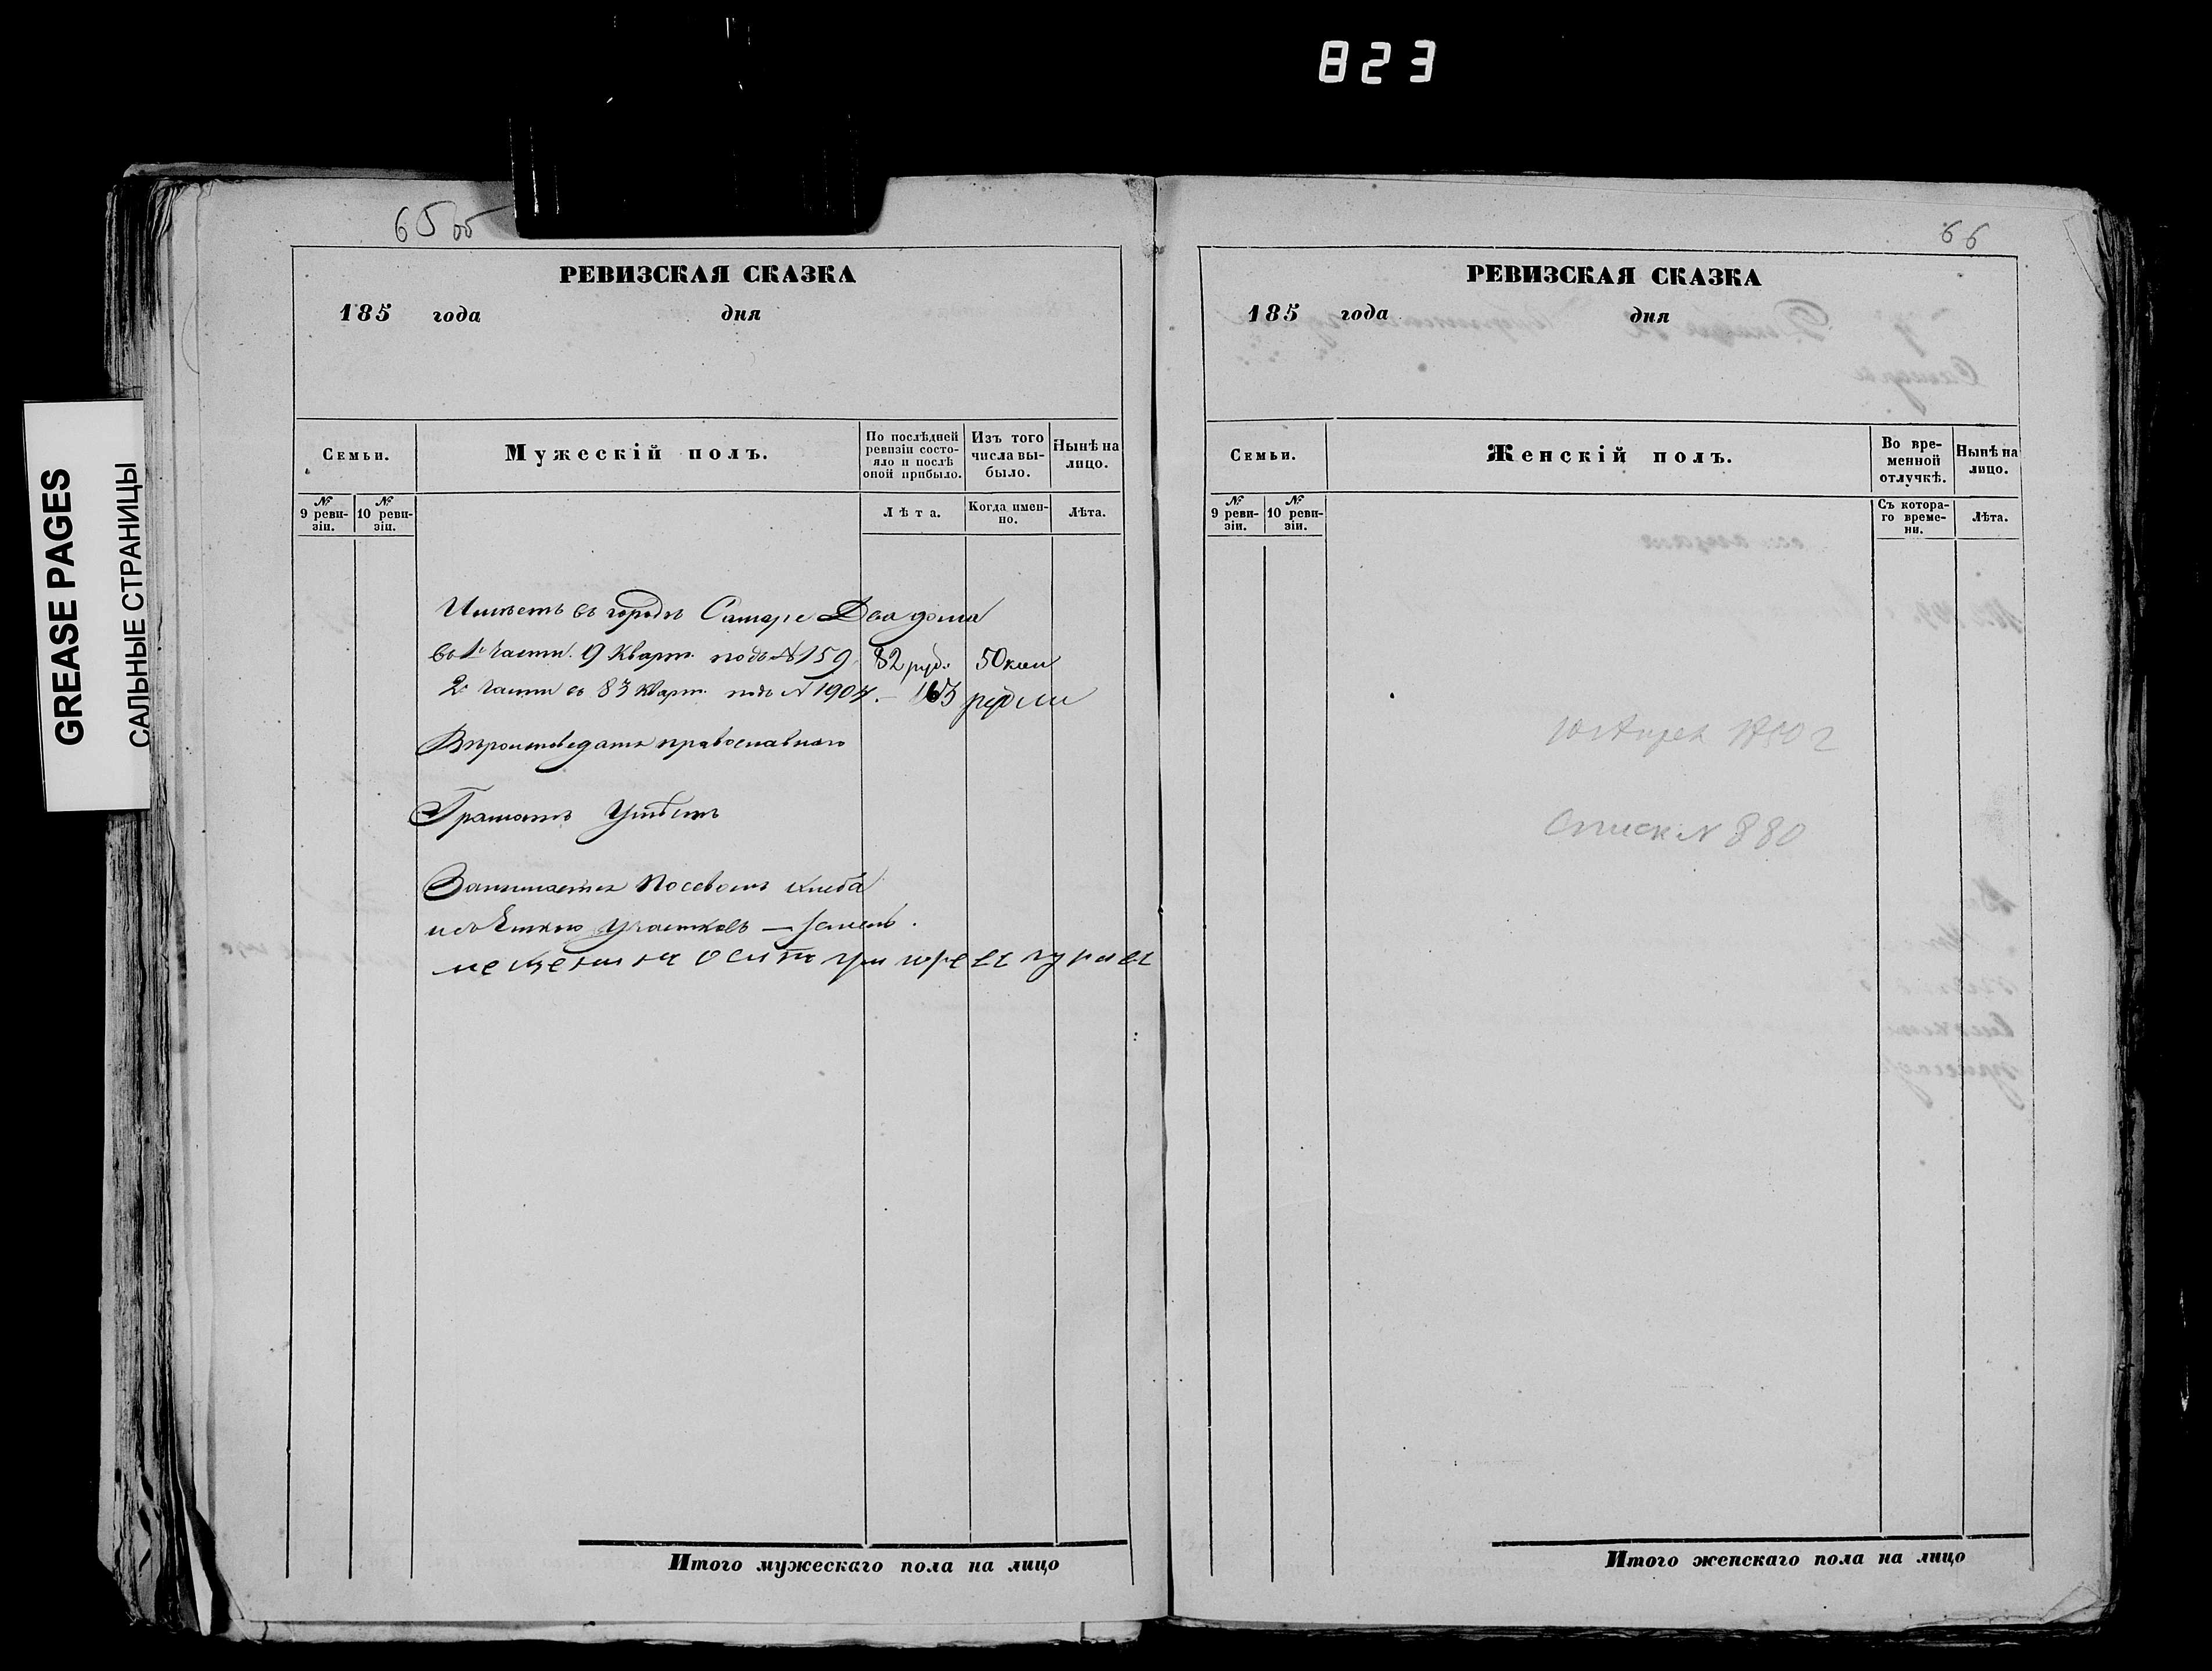 823
GREASE PAGES
САЛЬНЫЕ СТРАНИЦЫ
65об
РЕВИЗСКАЯ СКАЗКА
185 года дня
Семьи.
Мужескій полъ.
По послѣдней ревизіи состояло и послѣ оной прибыло.
Изъ того числа выбыло.
Нынѣ на лицо.
№ 9 ревизіи.
№ 10 ревизіи.
Лѣта.
Когда именно.
Лѣта.
Имѣетъ въ городѣ Самаре Два дома
во 1й части. 9 Кварт. подъ № 159. 82 руб. 50 коп
2й части въ 83 кварт. подъ № 1904. — 163 рубли
Вѣроисповеданія православнаго
Грамотѣ Умѣетъ
Занимается Посевомъ хлѣба
участковъ — земель.
66
РЕВИЗСКАЯ СКАЗКА
185 года дня
Семьи.
Женскій полъ.
Во временной отлучкѣ.
Нынѣ на лицо.
№ 9 ревизіи.
№ 10 ревизіи.
Съ котораго времени.
Лѣта.
10 Апрел 1850 г
Списк № 880
Итого мужескаго пола на лицо
Итого женскаго пола на лицо